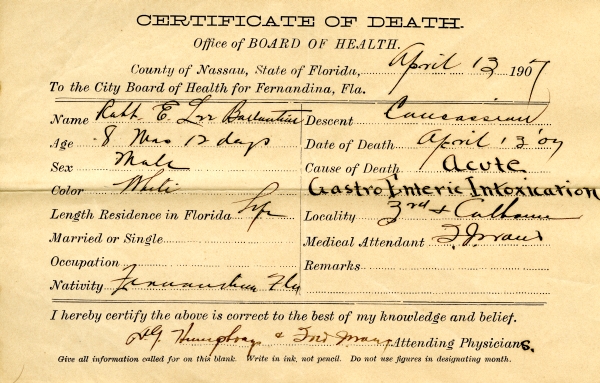 CERTIFICATE OF DEATH.
Office of BOARD OF HEALTH.
County of Nassau, State of Florida, April 13 1907
To the City Board of Health for Fernandina, Fla.
Name Robt. E. Lee Ballantine
Age 8 Mos 12 days
Sex Male
Color White
Length Residence in Florida Life
Married or Single
Occupation
Nativity Fernandina Fla
Descent Caucassian
Date of Death April 13 '07
Cause of Death Acute
Gastro Enteric Intoxication
Locality 3rd & Calhoun
Medical Attendant
Remarks
I hereby certify the above is correct to the best of my knowledge and belief.
Humphreys & Attending Physicians.
Give all information called for on this blank. Write in ink, not pencil. Do not use figures in designating month.